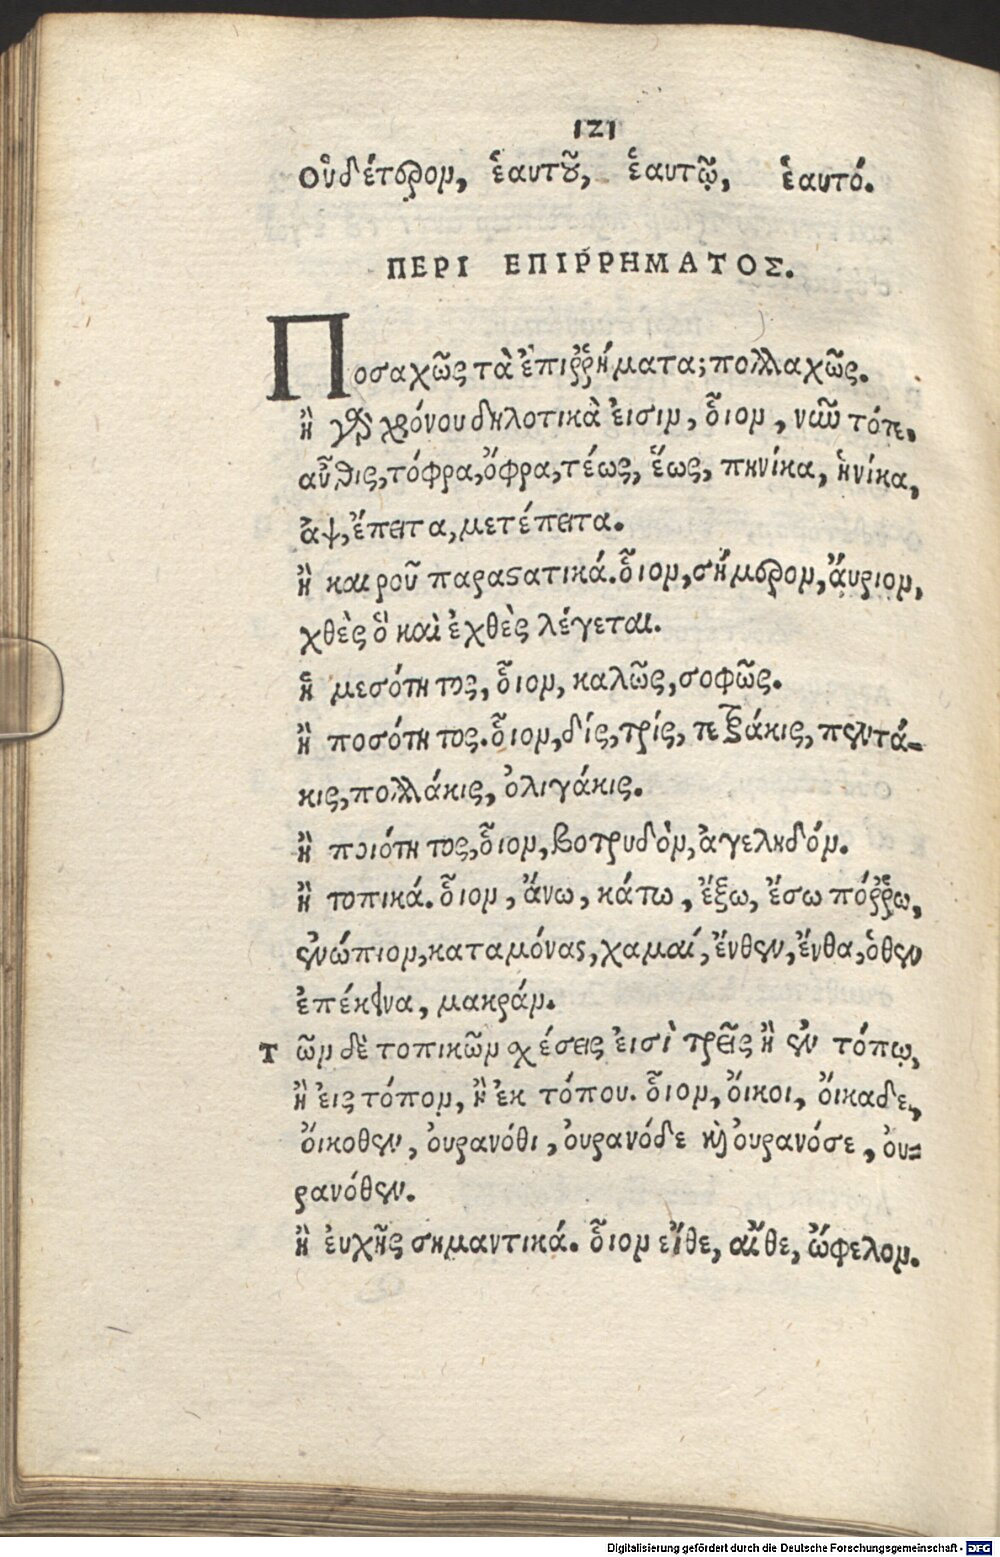 121
Οὐδέτερον, ἑαυτοῦ, ἑαυτῷ, ἑαυτό.
ΠΕΡΙ ΕΠΙΡΡΗΜΑΤΟΣ.
Ποσαχῶς τὰ ἐπιῤῥήματα; πολλαχῶς.
ἢ γὰρ χρόνου δηλοτικὰ εἰσιν, οἷον, νῦν τότε,
αὖθις, τόφρα, ὄφρα, τέως, ἕως, πηνίκα, ἡνίκα,
ἂψ, ἔπειτα, μετέπειτα.
ἢ καιροῦ παραστατικά. οἷον, σήμερον, ἄυριον,
χθὲς ὃ καὶ ἐχθὲς λέγεται.
ἢ μεσότητος, οἷον, καλῶς, σοφῶς.
ἢ ποσότητος. οἷον, δίς, τρίς, τετράκις, πεντά-
κις, πολλάκις, ὀλιγάκις.
ἢ ποιότητος, οἷον, βοτρυδὸν, ἀγεληδόν.
ἢ τοπικά. οἷον, ἄνω, κάτω, ἔξω, ἔσω πόῤῥω,
ἐνώπιον, καταμόνας, χαμαί, ἔνθεν, ἔνθα, ὅθεν
ἐπέκεινα, μακράν.
Τῶν δὲ τοπικῶν σχέσεις εἰσὶ τρεῖς ἢ ἐν τόπῳ,
ἢ εἰς τόπον, ἢ ἐκ τόπου. οἷον, ὄικοι, ὄικαδε,
ὄικοθεν, ὀυρανόθι, ὀυρανόδε καὶ ὀυρανόσε, ὀυ-
ρανόθεν.
ἢ ἐυχῆς σημαντικά. οἷον εἴθε, αἴθε, ὤφελον.
Digitalisierung gefördert durch die Deutsche Forschungsgemeinschaft - DFG